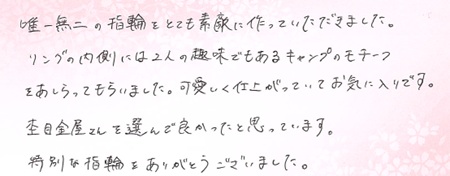 唯一無二の指輪をとても素敵に作っていただきました。
リングの内側には2人の趣味でもあるキャンプのモチーフ
をあしらってもらいました。可愛いく仕上がっていてお気に入りです。
杢目金屋さんを選んで良かったと思っています。
特別な指輪をありがとうございました。